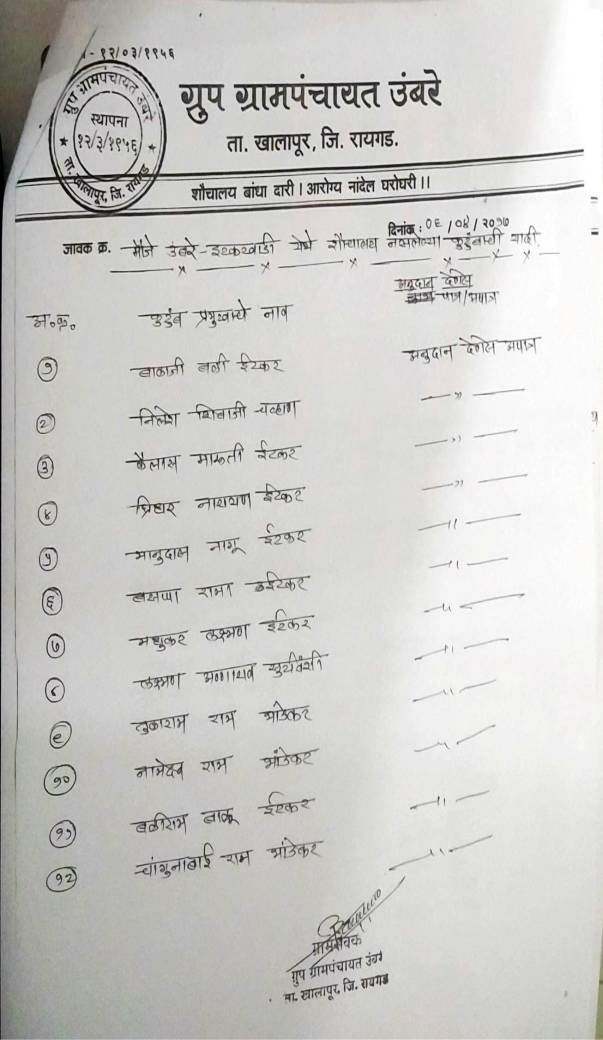 - १२/०३/१९५६
ग्रुप ग्रामपंचायत उंबरे
स्थापना
१२/३/१९५६
ता. खालापूर, जि. रायगड.
ग्रुप ग्रामपंचायत उंबरे
ता. खालापूर, जि. रायगड.
शौचालय बांधा दारी । आरोग्य नांदेल घरोघरी ।।
दिनांक : ०६ / ०४ / २०१७
जावक क्र. मौजे उंबरे-इटकरवाडी येथे शौचालय नसलेल्या कुटुंबाची यादी
अनुदान देणेस
पात्र/अपात्र
अ.क्र. कुटुंब प्रमुखाचे नाव
१ बाळाजी बली ईटकर अनुदान देणेस अपात्र
२ निलेश शिवाजी चव्हाण —"—
३ कैलास मारुती ईटकर —"—
४ नारायण ईटकर —"—
५ भानुदास नागू ईटकर —"—
६ बसप्पा रामा ईटकर —"—
७ मधुकर लक्ष्मण ईटकर —"—
८ लक्ष्मण सुर्यवंशी —"—
९ तुकाराम राम भांडेकर —"—
१० नामदेव राम भांडेकर —"—
११ बळीराम बाळू ईटकर —"—
१२ चांगुनाबाई राम भांडेकर —"—
ग्रामसेवक
ग्रुप ग्रामपंचायत उंबरे
ता. खालापूर, जि. रायगड